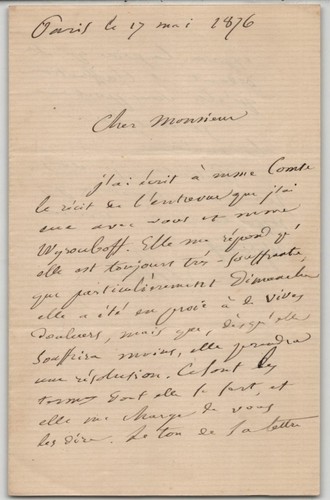 Paris le 17 mai 1876
Cher Monsieur
j'ai écrit à mme Comte
le récit de l'entrevue que j'ai
eue avec vous et mme
Wyrouboff. Elle me répond qu'
elle est toujours très-souffrante,
que particulièrement Dimanche
elle a été en proie à de vives
douleurs, mais que, dès qu'elle
souffrira moins, elle prendra
une résolution. Ce sont les
termes dont elle se sert, et
elle me charge de vous
les dire. Le ton de sa lettre